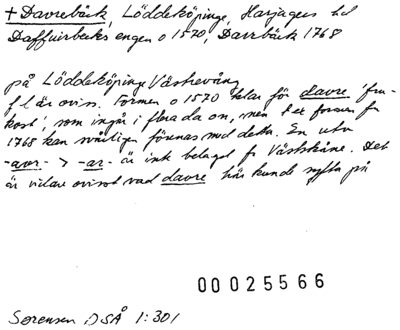 + Davrebäck, Löddeköpinge, Harjagers hd
Daffuirbecks engen o 1570, Davrbäck 1768
på Löddeköpinge Västervång
f l är oviss. Formen o 1570 talar för davre 'fru-
kost', som ingår i flera da on, men t ex formen fr
1768 kan svårligen förenas med detta. En utv
-avr- > -ar- är ink belagd fr Västskåne. Det
är vidare ovisst vad davre här kunde syfta på
00025566
Sørensen DSÅ 1:301